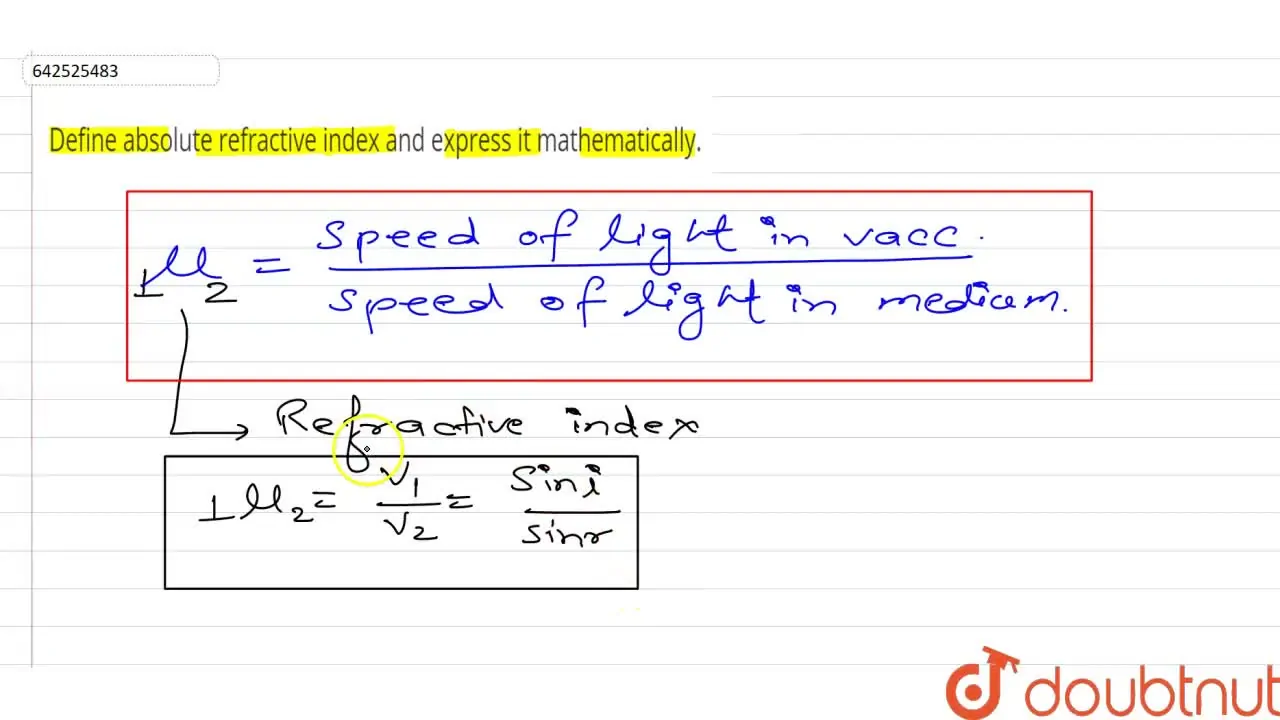 642525483
Define absolute refractive index and express it mathematically.
₁μ₂ = speed of light in vacc. / speed of light in medium.
Refractive index
₁μ₂ = V₁/V₂ = Sin i/sin r
doubtnut